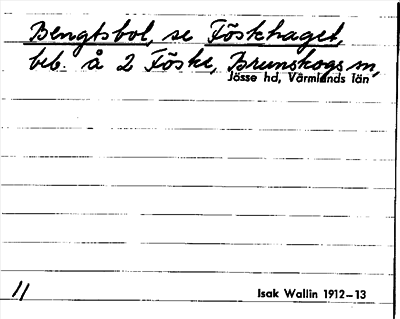 Bengtsbol, se Föskhaget,
beb. å 2 Föske, Brunskogs sn,
Jösse hd, Värmlands län
11
Isak Wallin 1912–13